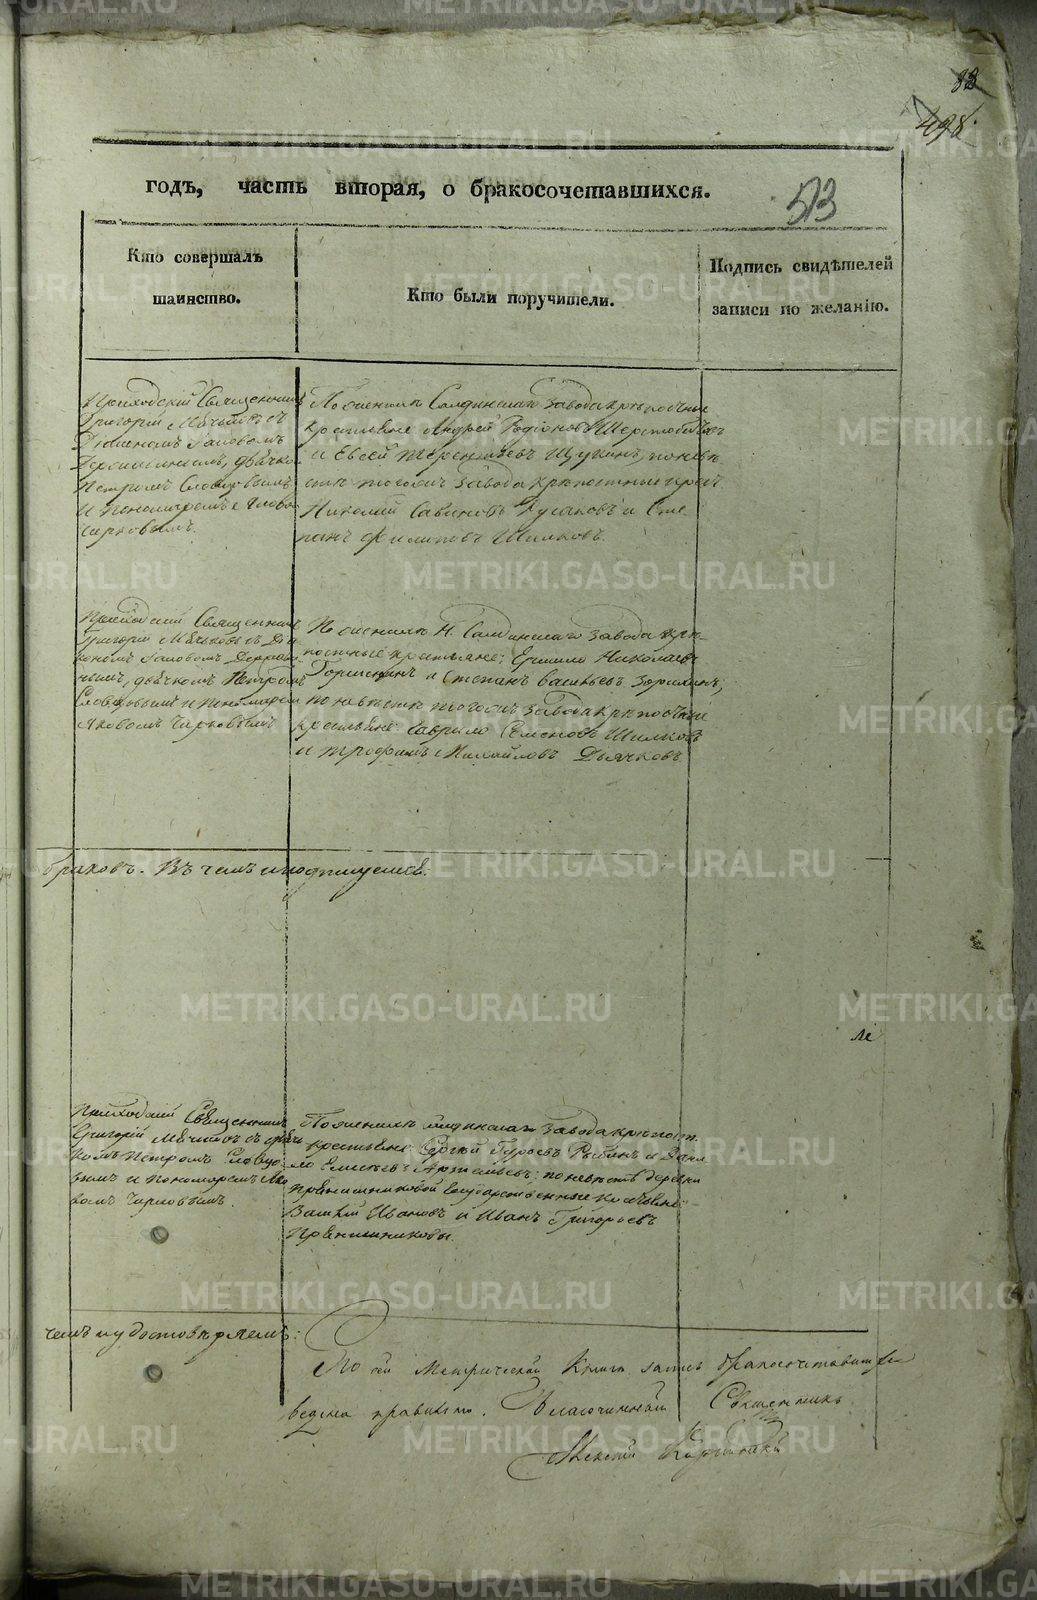 83
498
513
годъ, часть вторая, о бракосочетавшихся.
Кто совершалъ
таинство.
Кто были поручители.
Подпись свидѣтелей
записи по желанію.
Приходскій Священникъ
Григорій съ
Діакономъ
дьячко
Петромъ Словцовымъ
и пономаремъ Яково
По женихѣ Салдинскаго завода крѣпостные
крестьяне Андрей Родіоновъ Шерстобитовъ
и Евсей Терентьевъ Щукинъ, по невѣ
стѣ тогожъ завода крѣпостные крест
Николай Савиновъ Гусаковъ и Сте
панъ Филиповъ Шилковъ.
Приходскій Священникъ
Григорій съ Діа
кономъ
нымъ, дьячкомъ Петромъ
Словцовымъ и пономаремъ
Яковомъ
По женихѣ Н. Салдинскаго завода крѣ-
постные крестьяне: Ермило Николаевъ
и Степанъ Васильевъ Зорихинъ,
по невѣстѣ тогожъ завода крѣпостные
крестьяне Гаврило Семеновъ Шилковъ
и Трофимъ Михайловъ Дьячковъ
браковъ. Въ чемъ и подпишуемся.
Приходскій Священникъ
Григорій съ дьяч
комъ Петромъ Словцо
вымъ и пономаремъ Яко
вомъ
По женихѣ Салдинскаго завода крѣпост.
крестьяне Сергѣй и Дани
ло Елисѣевъ Артемьевъ; по невѣстѣ деревни
Прянишниковой Государственные крестьяне
Василій Ивановъ и Иванъ Григорьевъ
Прянишниковы.
чемъ и удостовѣряемъ:
По сей Метрической Книгѣ запись бракосочетавшихся
ведена правильно. Благочинный Священникъ
Алексій
METRIKI.GASO-URAL.RU